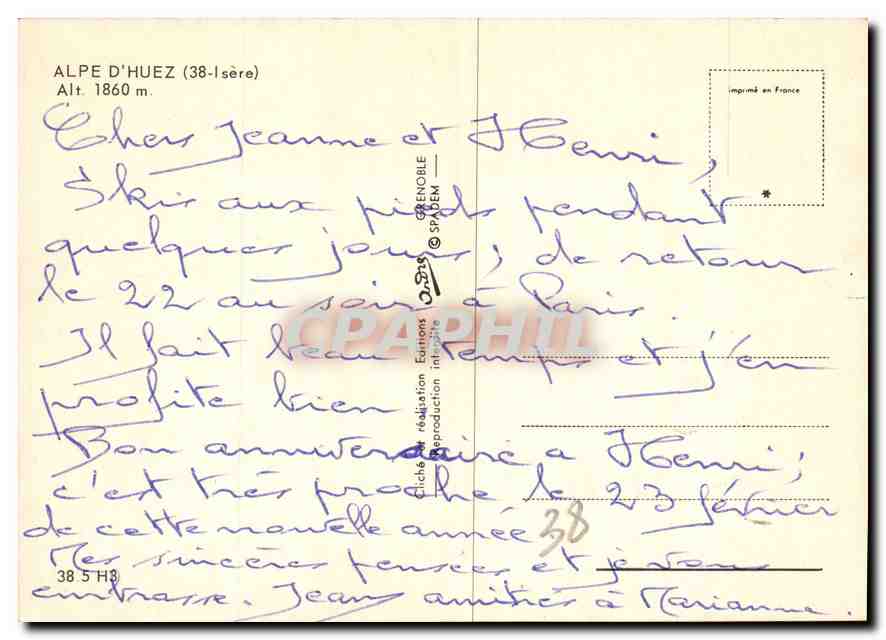 ALPE D'HUEZ (38-Isère)
Alt. 1860 m.
imprimé en France
*
Chers Jeanne et Henri,
Skis aux pieds pendant
quelques jours, de retour
le 22 au soir à Paris.
Il fait beau temps et j'en
profite bien.
Bon anniversaire a Henri,
c'est très proche le 23 février
de cette nouvelle année
Mes sincères pensées et je vous
embrasse. Jean amitiés à Marianne.
38
38 5 H3
Cliché et réalisation Editions André GRENOBLE
Reproduction interdite © SPADEM
CPAPHIL